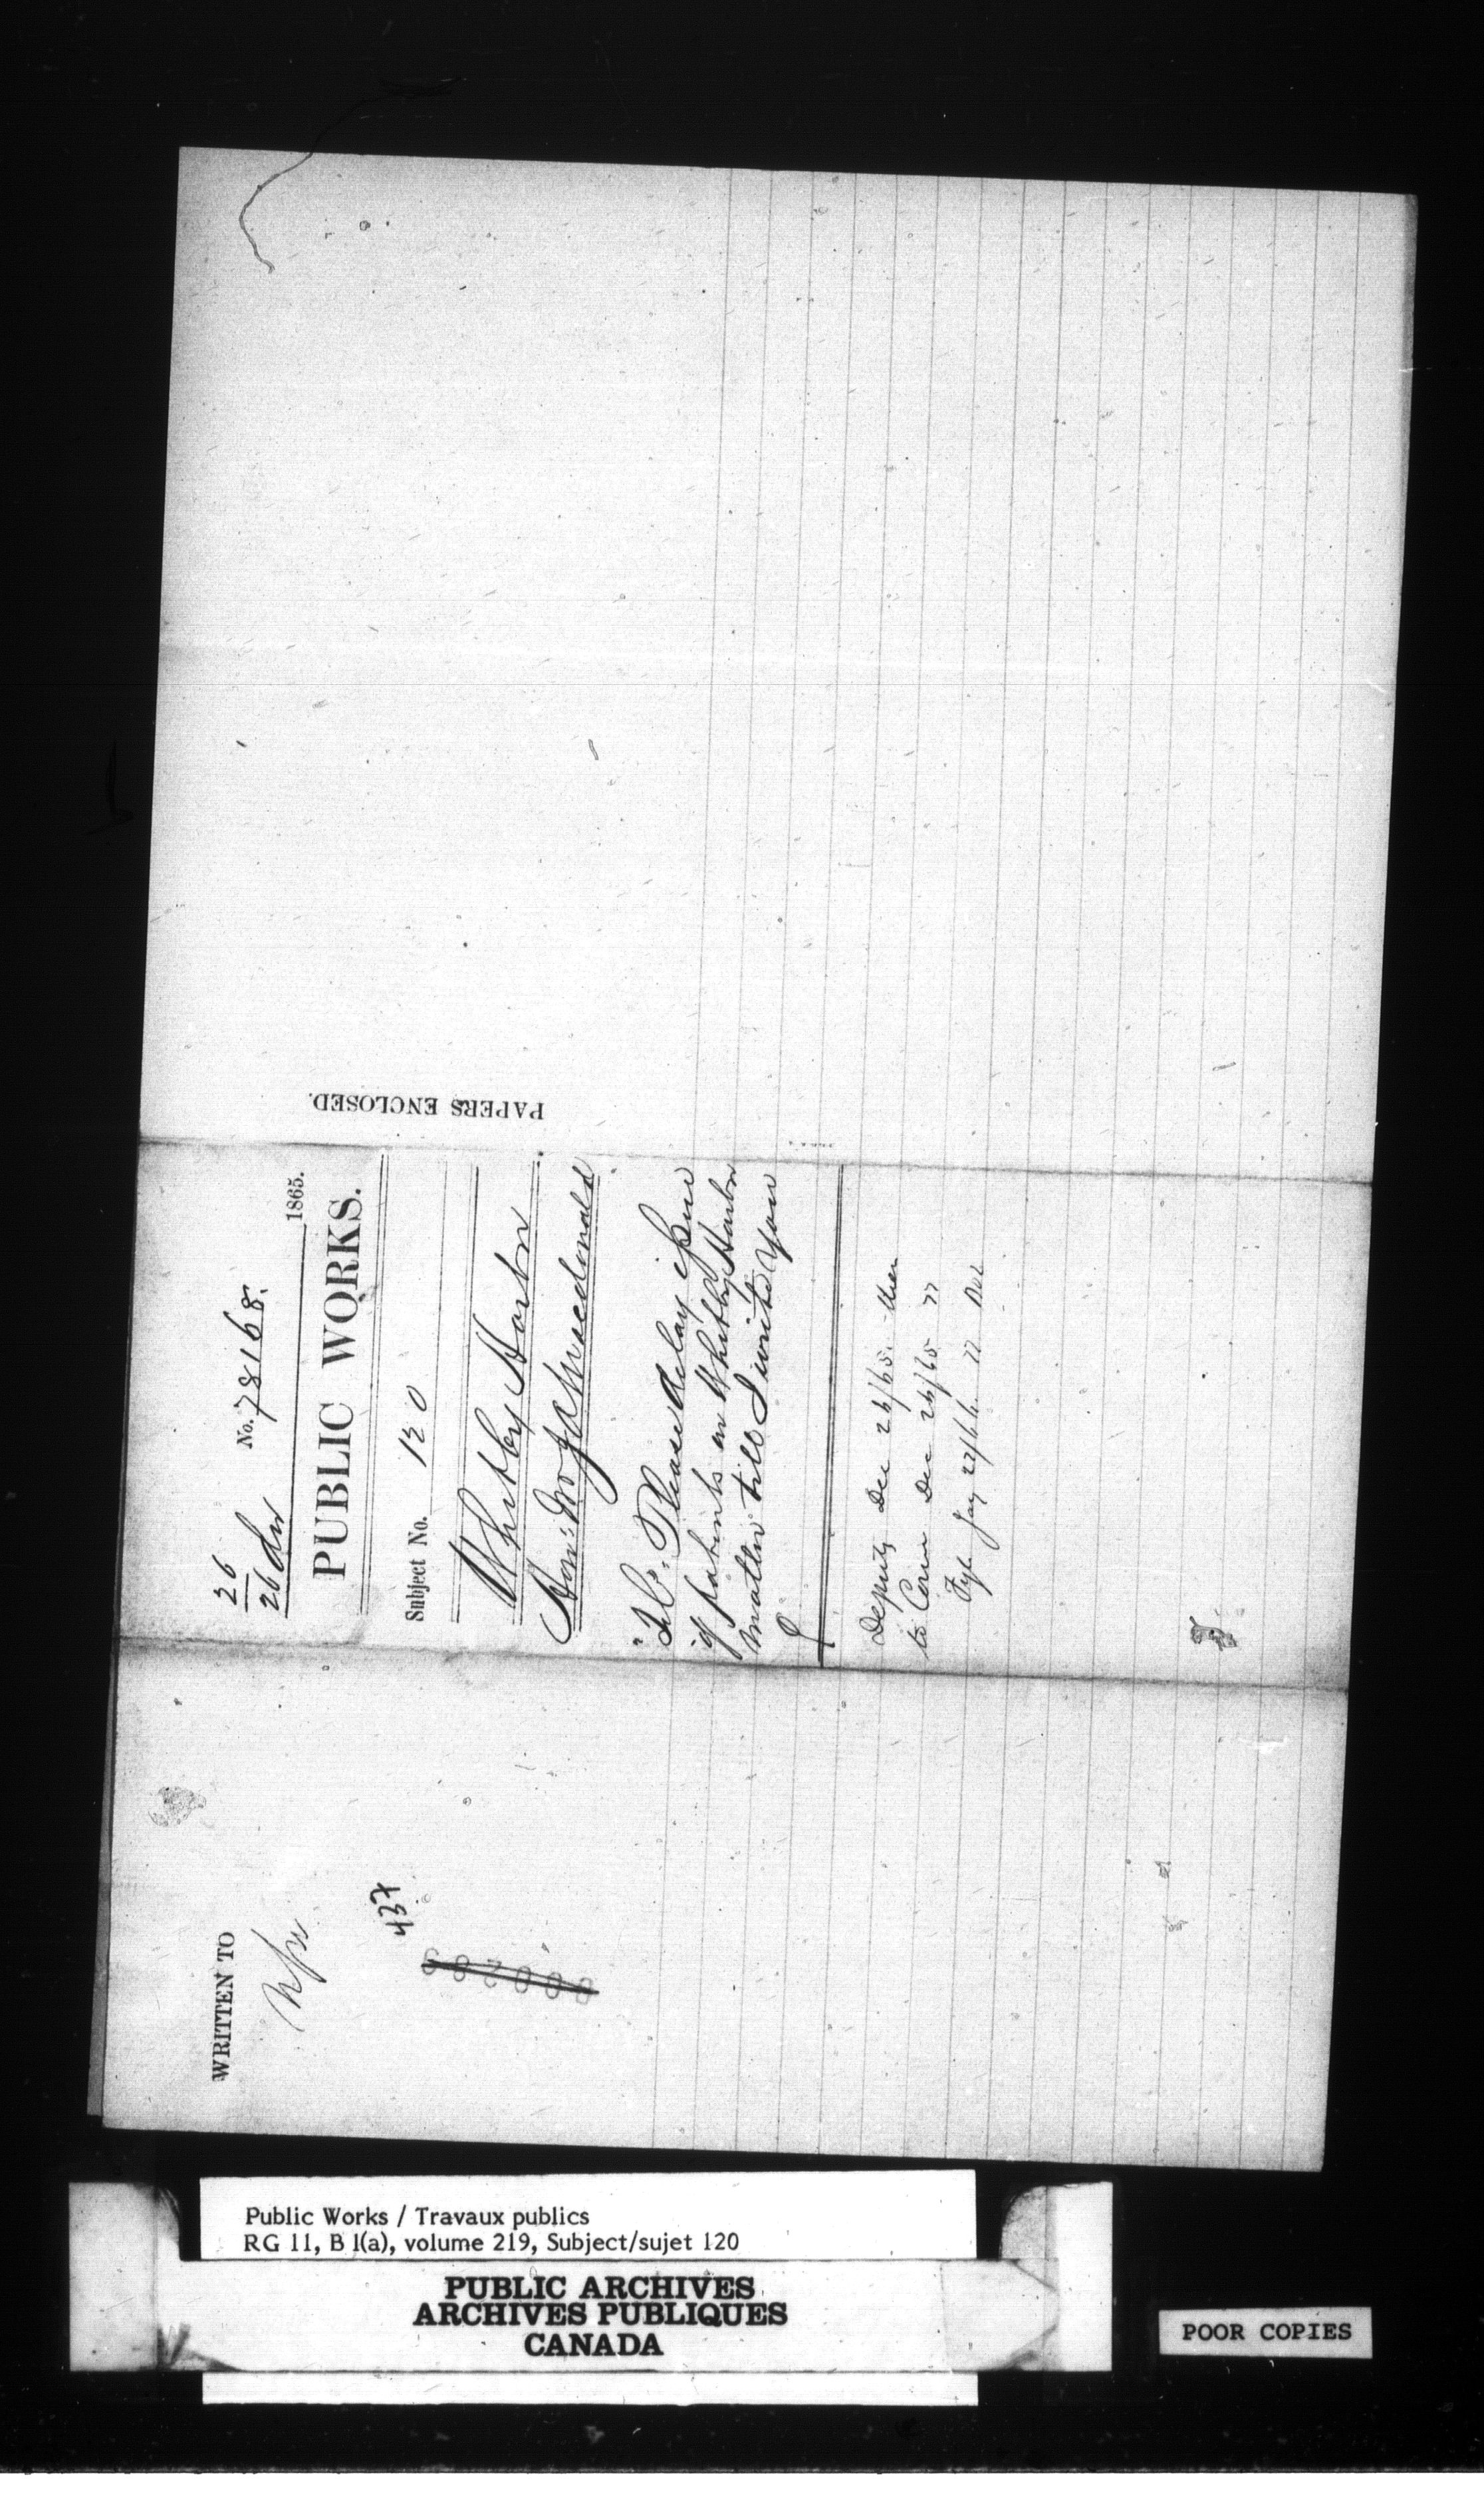 PAPERS ENCLOSED.
26
26 Dec
No. 78168.
1865.
PUBLIC WORKS.
Subject No. 120
Whitby Harbor
Hon: Mr J A Macdonald
Please delay issue
of patents on Whitby Harbor
matter till I write you
Deputy Dec 26/65.
to Com Dec 26/65 "
Fyle Jay 22/66
WRITTEN TO
437
Public Works / Travaux publics
RG 11, B 1(a), volume 219, Subject/sujet 120
PUBLIC ARCHIVES
ARCHIVES PUBLIQUES
CANADA
POOR COPIES